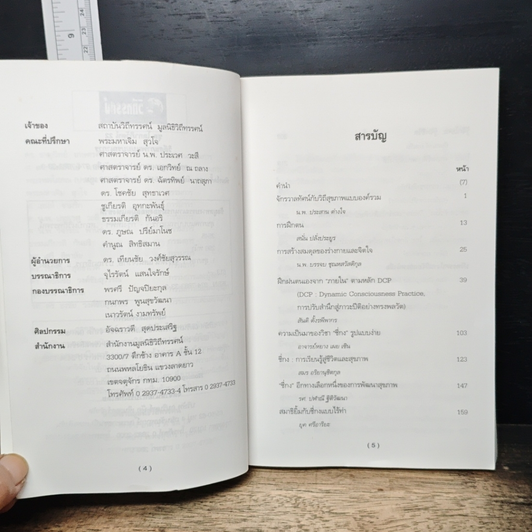 เจ้าของ สถาบันวิถีทรรศน์ มูลนิธิวิถีทรรศน์
คณะที่ปรึกษา พระมหาเจิม สุวโจ
ศาสตราจารย์ น.พ. ประเวศ วะสี
ศาสตราจารย์ ดร. เอกวิทย์ ณ ถลาง
ศาสตราจารย์ ดร. ฉัตรทิพย์ นาถสุภา
ดร. โชคชัย สุทธาเวศ
ชูเกียรติ อุทกะพันธุ์
ธรรมเกียรติ กันอริ
ดร. ภูษณ ปรีย์มาโนช
คำนูณ สิทธิสมาน
ผู้อำนวยการ ดร. เทียนชัย วงศ์ชัยสุวรรณ
บรรณาธิการ จุไรรัตน์ แสนใจรักษ์
กองบรรณาธิการ พรศรี ปัญจปิยะกุล
กนกพร พูนสุขวัฒนา
ณาวรัตน์ งามทรัพย์
ศิลปกรรม อัจฉราวดี สุดประเสริฐ
สำนักงาน สำนักงานมูลนิธิวิถีทรรศน์
3300/7 ตึกช้าง อาคาร A ชั้น 12
ถนนพหลโยธิน แขวงลาดยาว
เขตจตุจักร กทม. 10900
โทรศัพท์ 0 2937-4733-4 โทรสาร 0 2937-4733
(4)
สารบัญ
หน้า
คำนำ (7)
จักรวาลทัศน์กับวิถีสุขภาพแบบองค์รวม 1
น.พ. ประสาน ต่างใจ
การฝึกตน 13
เสนีย์
การสร้างสมดุลของร่างกายและจิตใจ 25
น.พ. บรรจบ ชุณหสวัสดิกุล
ฝึกฝนตนเองจาก "ภายใน" ตามหลัก DCP 39
(DCP : Dynamic Consciousness Practice.
การปรับสำนึกสู่ภาวะปีติอย่างทรงพลวัต)
สันติ ตั้งรพีพากร
ความเป็นมาของวิชา "ชี่กง" รูปแบบง่าย 103
อาจารย์หยาง เผย เซิน
ชี่กง : การเรียนรู้สู่ชีวิตและสุขภาพ
"ชี่กง" อีกทางเลือกหนึ่งของการพัฒนาสุขภาพ 147
รศ. ปฬาณี ฐิติวัฒนา
สมาธิยิ้มกับชี่กงแบบไร้ท่า 159
ยุค ศรีอาริยะ
(5)